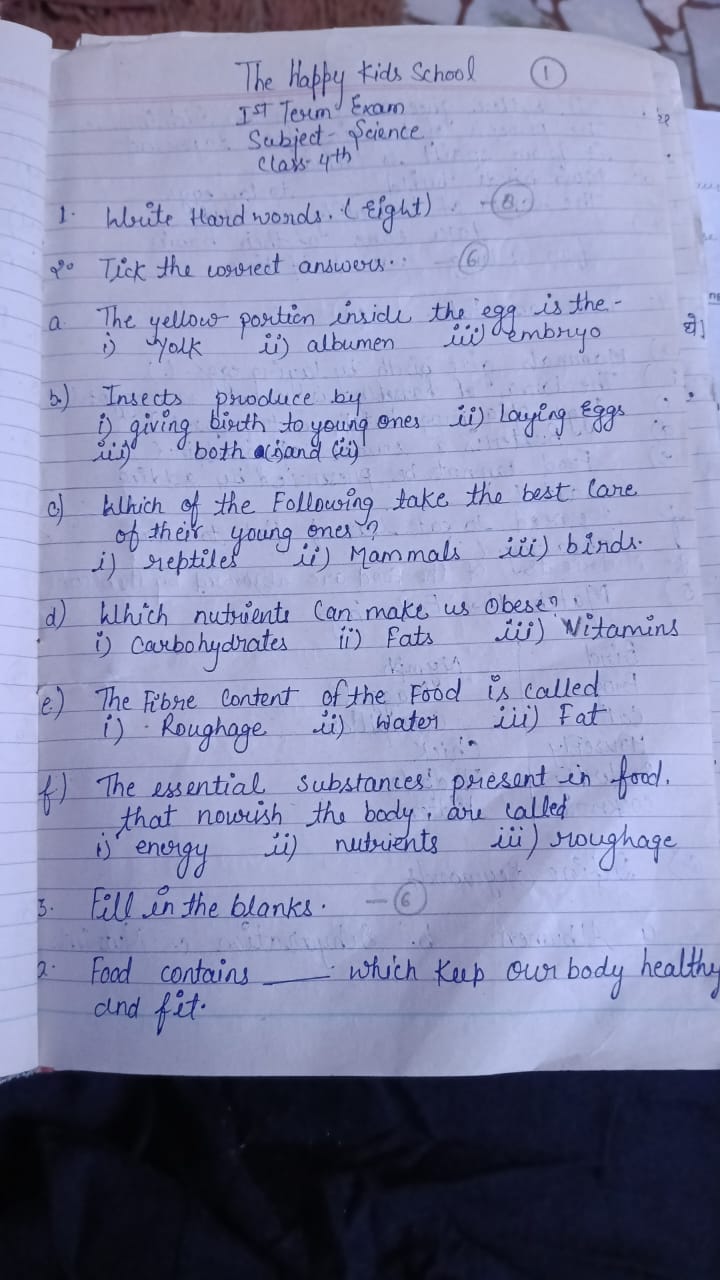 The Happy Kids School 1
Ist Term Exam
Subject - Science
Class - 4th
1. Write Hard words. (Eight) - 8
2. Tick the correct answers. - 6
a The yellow portion inside the egg is the -
i) Yolk ii) albumen iii) embryo
b.) Insects produce by
i) giving birth to young ones ii) Laying Eggs
iii) both (i) and (ii)
c) Which of the Following take the best Care
of their young ones?
i) reptiles ii) Mammals iii) birds.
d) Which nutrients Can make us Obese?
i) Carbohydrates ii) Fats iii) Vitamins
e) The Fibre Content of the Food is called
i) Roughage ii) Water iii) Fat
f) The essential substances present in food.
that nourish the body, are called
i) energy ii) nutrients iii) roughage
3. Fill in the blanks. - 6
a. Food contains ____ which Keep our body healthy
and fit.